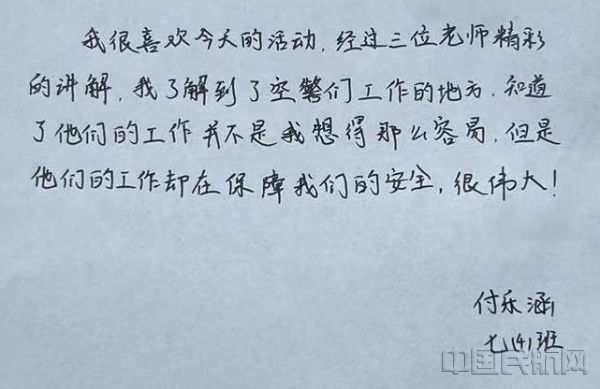 我很喜欢今天的活动，经过三位老师精彩
的讲解，我了解到了空警们工作的地方，知道
了他们的工作并不是我想得那么容易，但是
他们的工作却在保障我们的安全，很伟大！
付乐涵
七(4)班
中国民航网